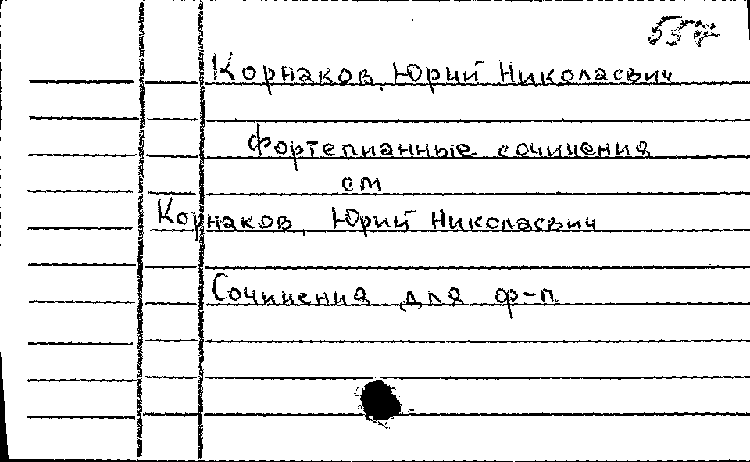 557
Корнаков, Юрий Николаевич
Фортепианные сочинения
см
Корнаков, Юрий Николаевич
Сочинения для ф-п